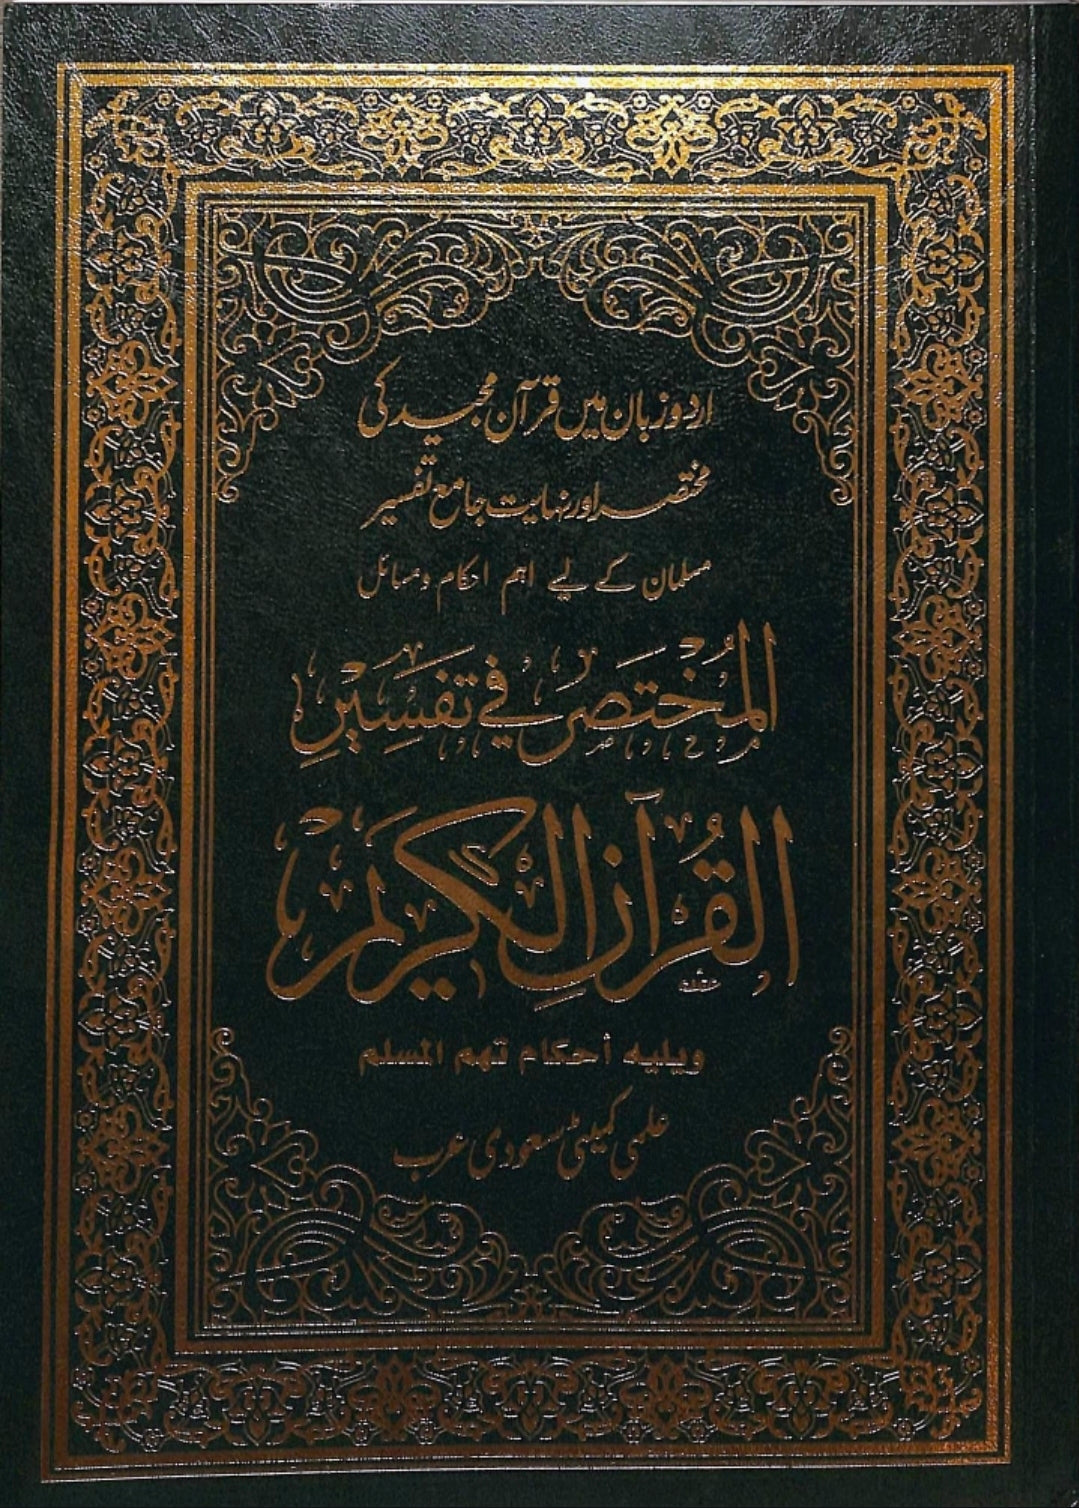 اردو زبان میں قرآن مجید کی
مختصر اور نہایت جامع تفسیر
مسلمان کے لیے اہم احکام و مسائل
المُخْتَصَرُ فِي تَفْسِيْرِ
القُرْآنِ الْكَرِيْمِ
ويليه أحكام تهم المسلم
علمی کمیٹی سعودی عرب